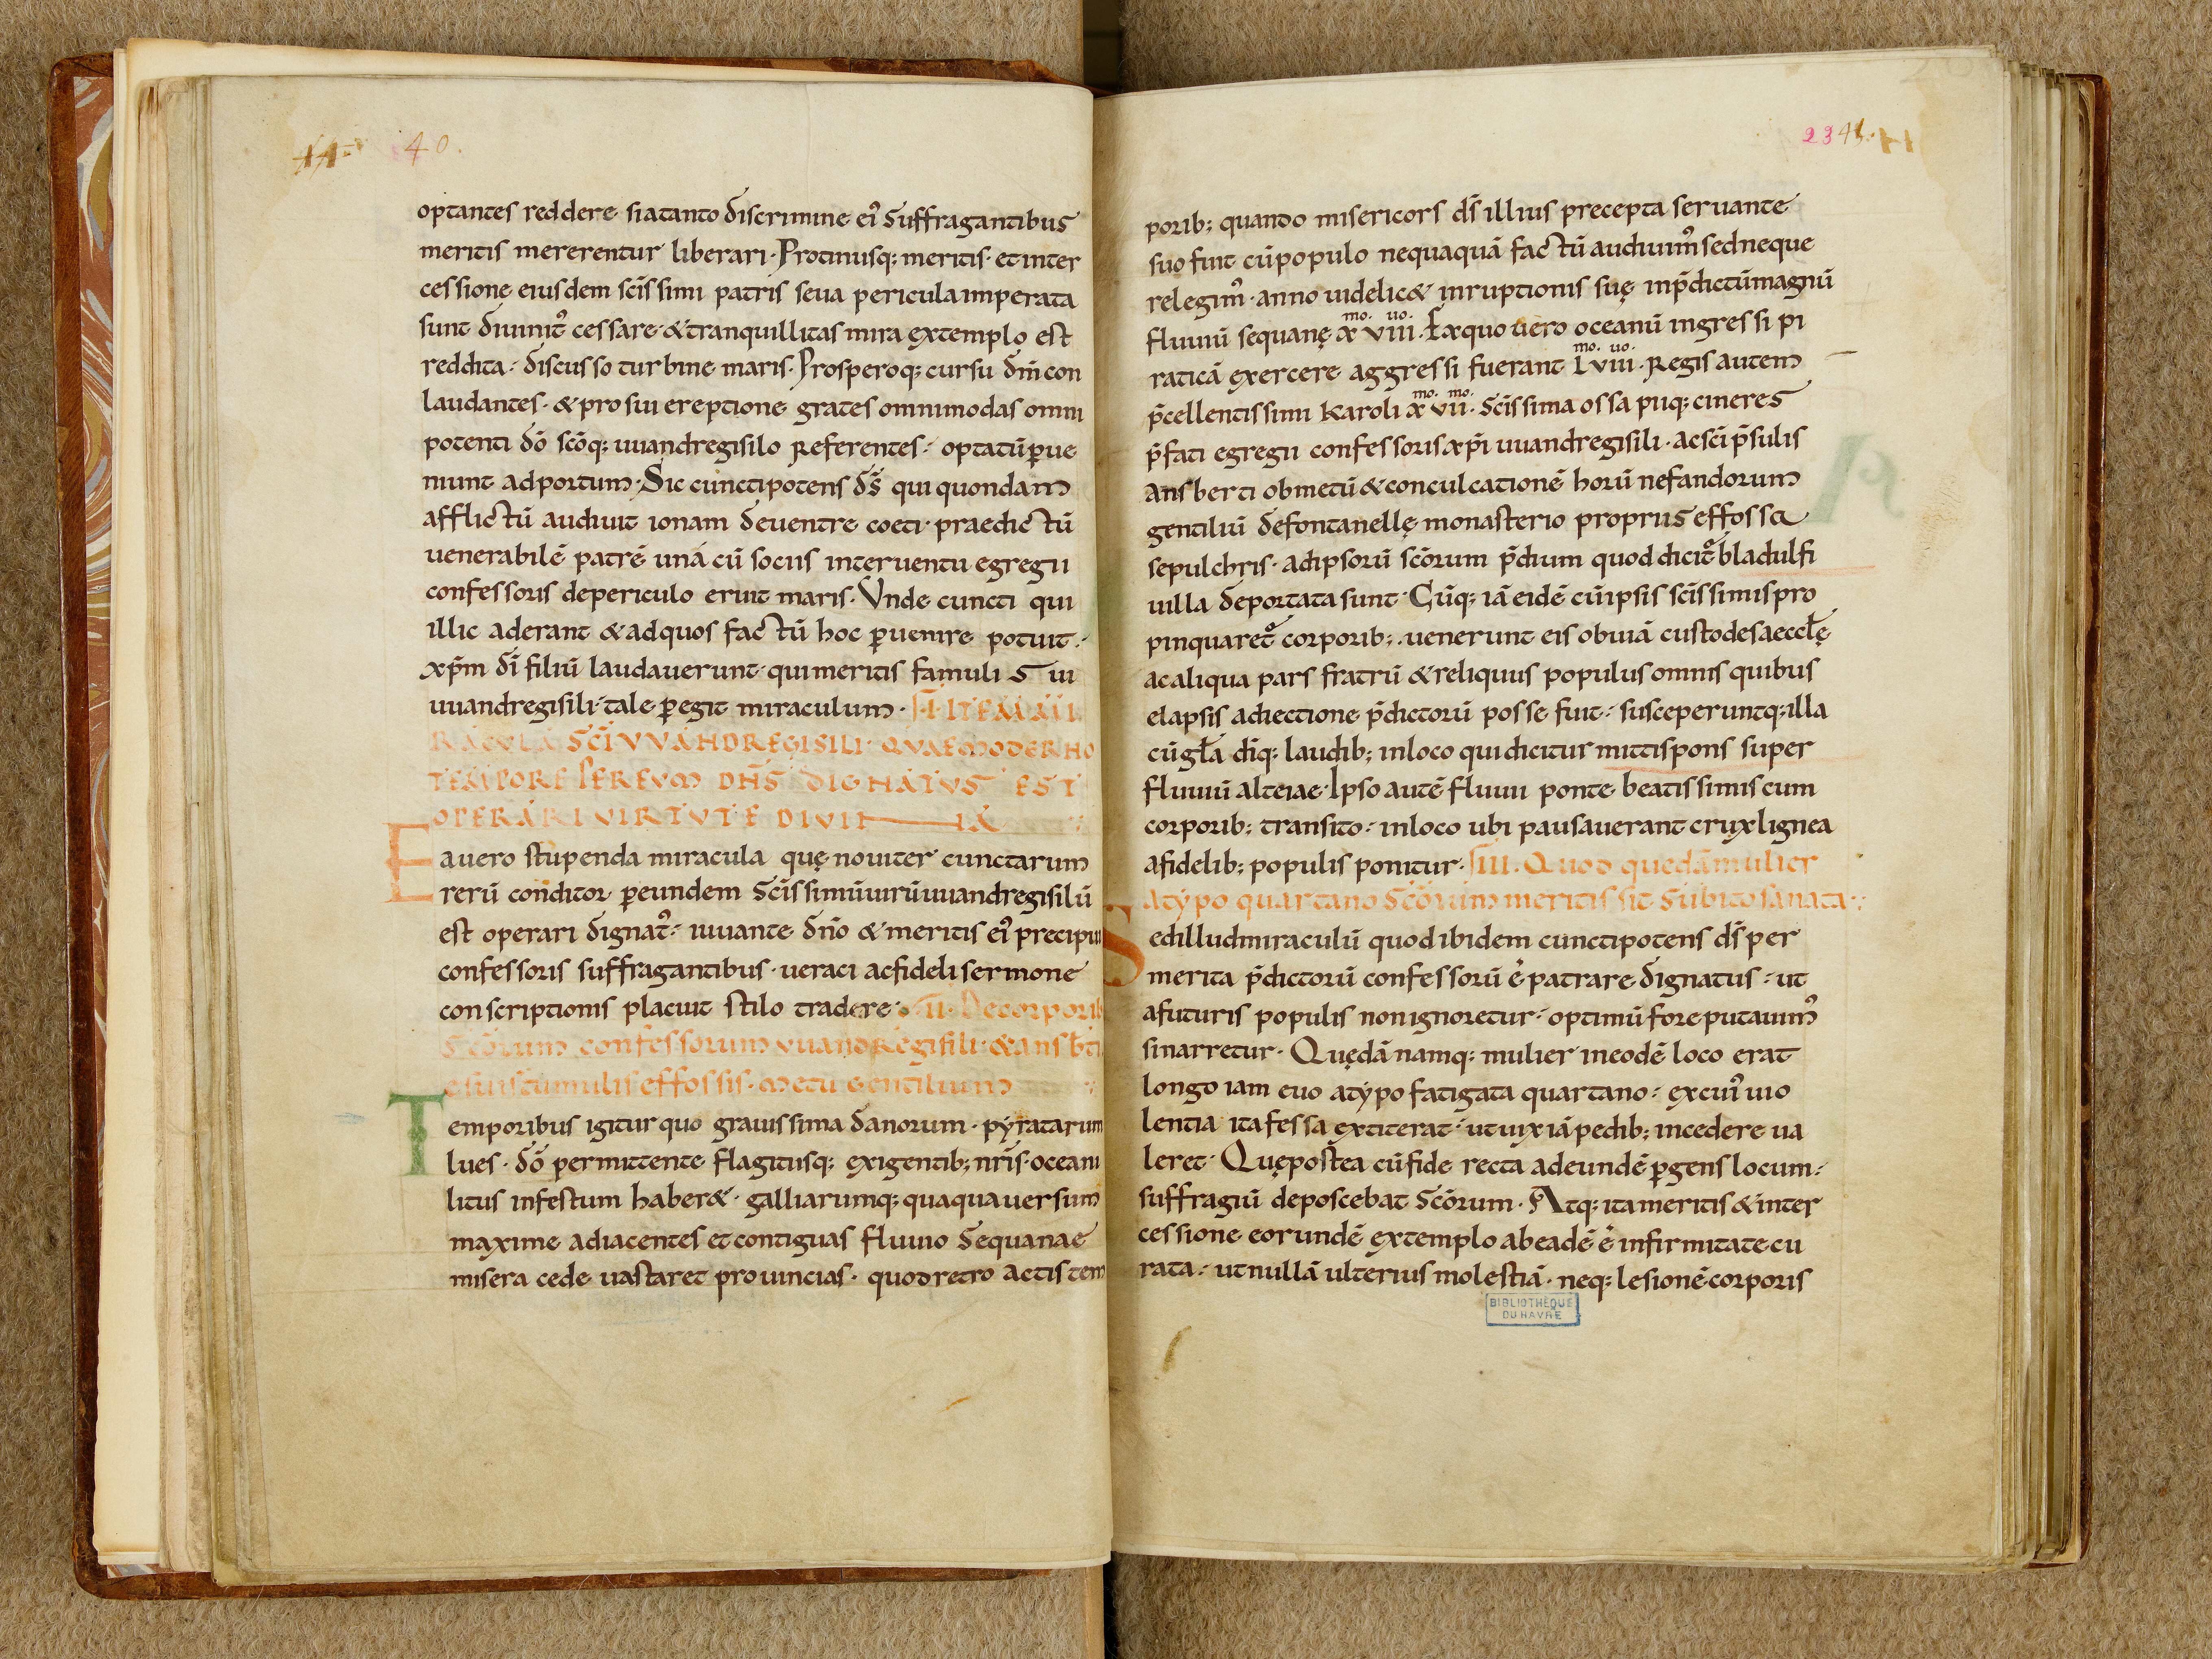 40.
optantes reddere si a tanto discrimine ei᾽ suffragantibus
meritis mererentur liberari. Protinusq; meritis et inter
cessione eiusdem scīssimi patris seua pericula imperata
sunt diuinit᾽ cessare & tranquillitas mira extemplo est
reddita. discusso turbine maris. Prosperoq; cursu dn̄m con
laudantes. & pro sui ereptione grates omnimodas omni
potenti dō scōq; uuandregisilo referentes. optatū ꝑue
niunt ad portum. Sic cunctipotens ds̄ qui quondam
afflictū audiuit ionam de uentre coeti. praedictū
uenerabilē patrē unā cū sociis interuentu egregii
confessoris de periculo eruit maris. Unde cuncti qui
illic aderant & ad quos factū hoc ꝑuenire potuit.
xp̄m dī filiū laudauerunt. qui meritis famuli sui
uuandregisili tale ꝑegit miraculum. ITEM MI
RACULA SC̄I VVANDREGISILI QVAE MODERNO
TEMPORE PER EVM DN̄S DIGNATVS EST
OPERARI VIRTVTE DIVINA
Ea uero stupenda miracula quę nouiter cunctarum
rerū conditor ꝑ eundem scīssimū uirū uuandregisilū
est operari dignat᾽. iuuante dn̄o & meritis ei᾽ precipui
confessoris suffragantibus. ueraci ac fideli sermone
conscriptionis placuit stilo tradere. II. De corporib;
scōrum confessorum vuandregisili & ansb̄ti
e suis tumulis effossis. metu gentilium
Temporibus igitur quo grauissima danorum. pyratarum
lues. dō permittente flagitiisq; exigentib; nr̄is. oceani
litus infestum haber&. galliarumq; quaquauersum
maxime adiacentes et contiguas fluuio sequanae
misera cede uastaret prouincias. quod retro actis tem
23 41.
porib; quando misericors ds̄ illius precepta seruante
suo fuit cū populo nequaquā factū audiuim᾽ sed neque
relegim᾽. anno uidelic& inruptionis suę in p̄dictū magnū
fluuiū sequanę xmo. viiiuo. Ex quo uero oceanū ingressi pi
raticā exercere aggressi fuerant Lmo. viiiuo. Regis autem
p̄cellentissimi karoli xmo. viimo. scīssima ossa puq; cineres
p̄fati egregii confessoris xp̄i uuandregisili. ac scī p̄sulis
ansberti ob metū & conculcationē horū nefandorum
gentiliū de fontanellę monasterio propriis effossa
sepulchris. ad ipsorū scōrum p̄dium quod dicit᾽ bladulfi
uilla deportata sunt. Cūq; iā eidē cū ipsis scīssimis pro
pinquaret᾽ corporib;. uenerunt eis obuiā custodes aeccl̄ę
ac aliqua pars fratrū & reliquus populus omnis quibus
elapsis adiectione p̄dictorū posse fuit. susceperuntq; illa
cū gl̄a dīq; laudib; in loco qui dicitur mittis pons super
fluuiū alteiae. Ipso autē fluuii ponte beatissimis cum
corporib; transito. in loco ubi pausauerant crux lignea
a fidelib; populis ponitur. III. Quod quedā mulier
a typo quartano scōrum meritis sit subito sanata.
Sed illud miraculū quod ibidem cunctipotens ds̄ per
merita p̄dictorū confessorū ē patrare dignatus. ut
a futuris populis non ignoretur. optimū fore putauim᾽
si narretur. Quędā namq; mulier in eodē loco erat
longo iam euo a typo fatigata quartano. ex cui᾽ uio
lentia ita fessa extiterat. ut uix iā pedib; incedere ua
leret. Quę postea cū fide recta ad eundē ꝑgens locum.
suffragiū deposcebat scōrum. Atq; ita meritis & inter
cessione eorundē extemplo ab eadē ē infirmitate cu
rata. ut nullā ulterius molestiā. neq; lesionē corporis
BIBLIOTHÈQUE
DU HAVRE